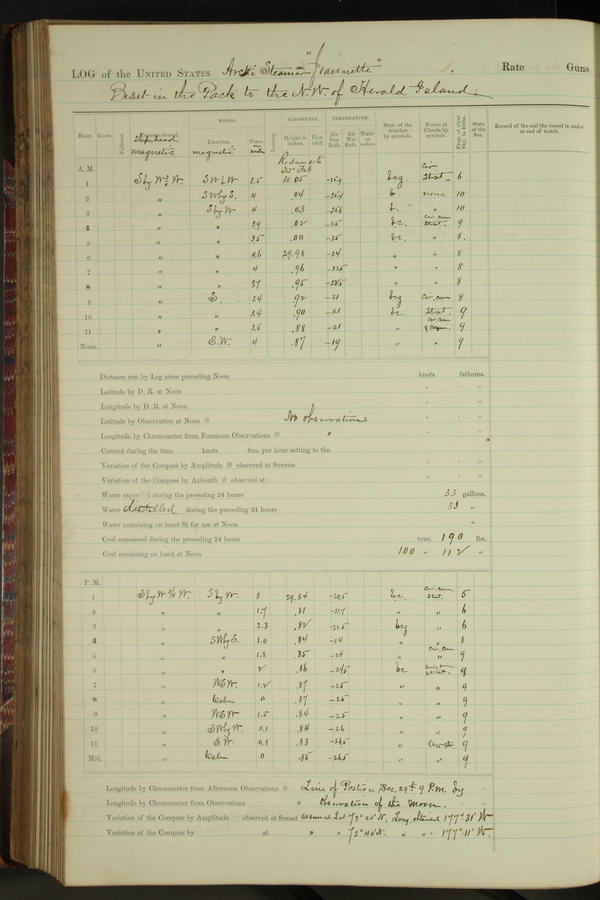 LOG of the UNITED STATES Arctic Steamer "Jeannette" Rate Guns
Beset in the Pack to the N.W. of Herald Island.
Hour. Knots. Fathoms. Ship's head magnetic WINDS. Direction. magnetic Force. Leeway. BAROMETER. Height in inches. Ther. att'd. TEMPERATURE. Air Dry Bulb. Air Wet Bulb. Water at Surface. State of the weather by symbols. Forms of Clouds by symbols. Prop. of clear Sky, in tenths. State of the Sea. Record of the sail the vessel is under at end of watch.
A. M. Reduced to 32° Fah.
1 S by W ¾ W. SW ½ W. 3.5 30.05 Cir. Strat. 6
2 " SW by S. 4 .04 none 10
3 " S by W 4 .03 " 10
4 " " 3.9 .02 -25 bc. Cir. cum. Strat. 9
5 " " 3.5 .00 -25 bc. " 8.
6 " " 4.6 29.98 -24 " " 8
7 " " 4 .96 " " 8
8 " " 3.7 .95 " " 8
9 " S. 3.4 .92 -21 Cir. cum 8
10 " " 3.4 .90 -21 bc. Strat. 9
11 " " 3.5 .88 -21 " 9
Noon. " S.W. 4 .87 -19 " " 9
Distance run by Log since preceding Noon knots fathoms.
Latitude by D. R. at Noon
Longitude by D. R. at Noon
Latitude by Observation at Noon No observations
Longitude by Chronometer from Forenoon Observations "
Current during the time knots fms. per hour setting to the
Variation of the Compass by Amplitude observed at Sunrise
Variation of the Compass by Azimuth observed at
Water expended during the preceding 24 hours 33 gallons.
Water distilled during the preceding 24 hours "
Water remaining on hand fit for use at Noon "
Coal consumed during the preceding 24 hours tons. 190 lbs.
Coal remaining on hand at Noon 100 " 112 "
P. M.
1 S by W ¾ W. S by W. 3 29.84 -20.5 bc. Cir. cum. Strat. 5
2 " " 1.7 .81 -21.7 " " 6
3 " " 2.3 .82 -22.5 " 6
4 " SW by S. 1.0 .84 -24 " " 8
5 " " 1.8 .85 -24 " Cir. cum 9
6 " " 2 .86 -24.5 bc Cir. cum. Strat. 9
7 " WSW. 1.2 .87 -25 " " 9
8 " Calm 0 .87 -25 " 9
9 " WSW 1.5 .84 -25 " " 9
10 " SW by W. 0.1 .84 -26 " " 9
11 " S.W. 0.3 .83 -26.5 " Cir. str. 9
Mid. " Calm 0 .85 -26.5 " " 9
Longitude by Chronometer from Afternoon Observations Line of Position Dec. 29th 9 P.M. by
Longitude by Chronometer from Observations Observation of the Moon.
Variation of the Compass by Amplitude observed at Sunset assumed Lat. 72° 20' N. Long. obtained 177° 31' W
Variation of the Compass by at " " 72° 40' N. " " 177° 11' W.